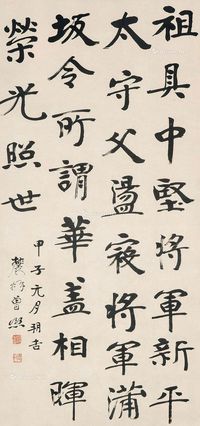 祖具中堅將軍新平
太守父盪寇將軍蒲
坂令所謂華盖相暉
榮光照世
甲子元月朔吉
農髯曾熙